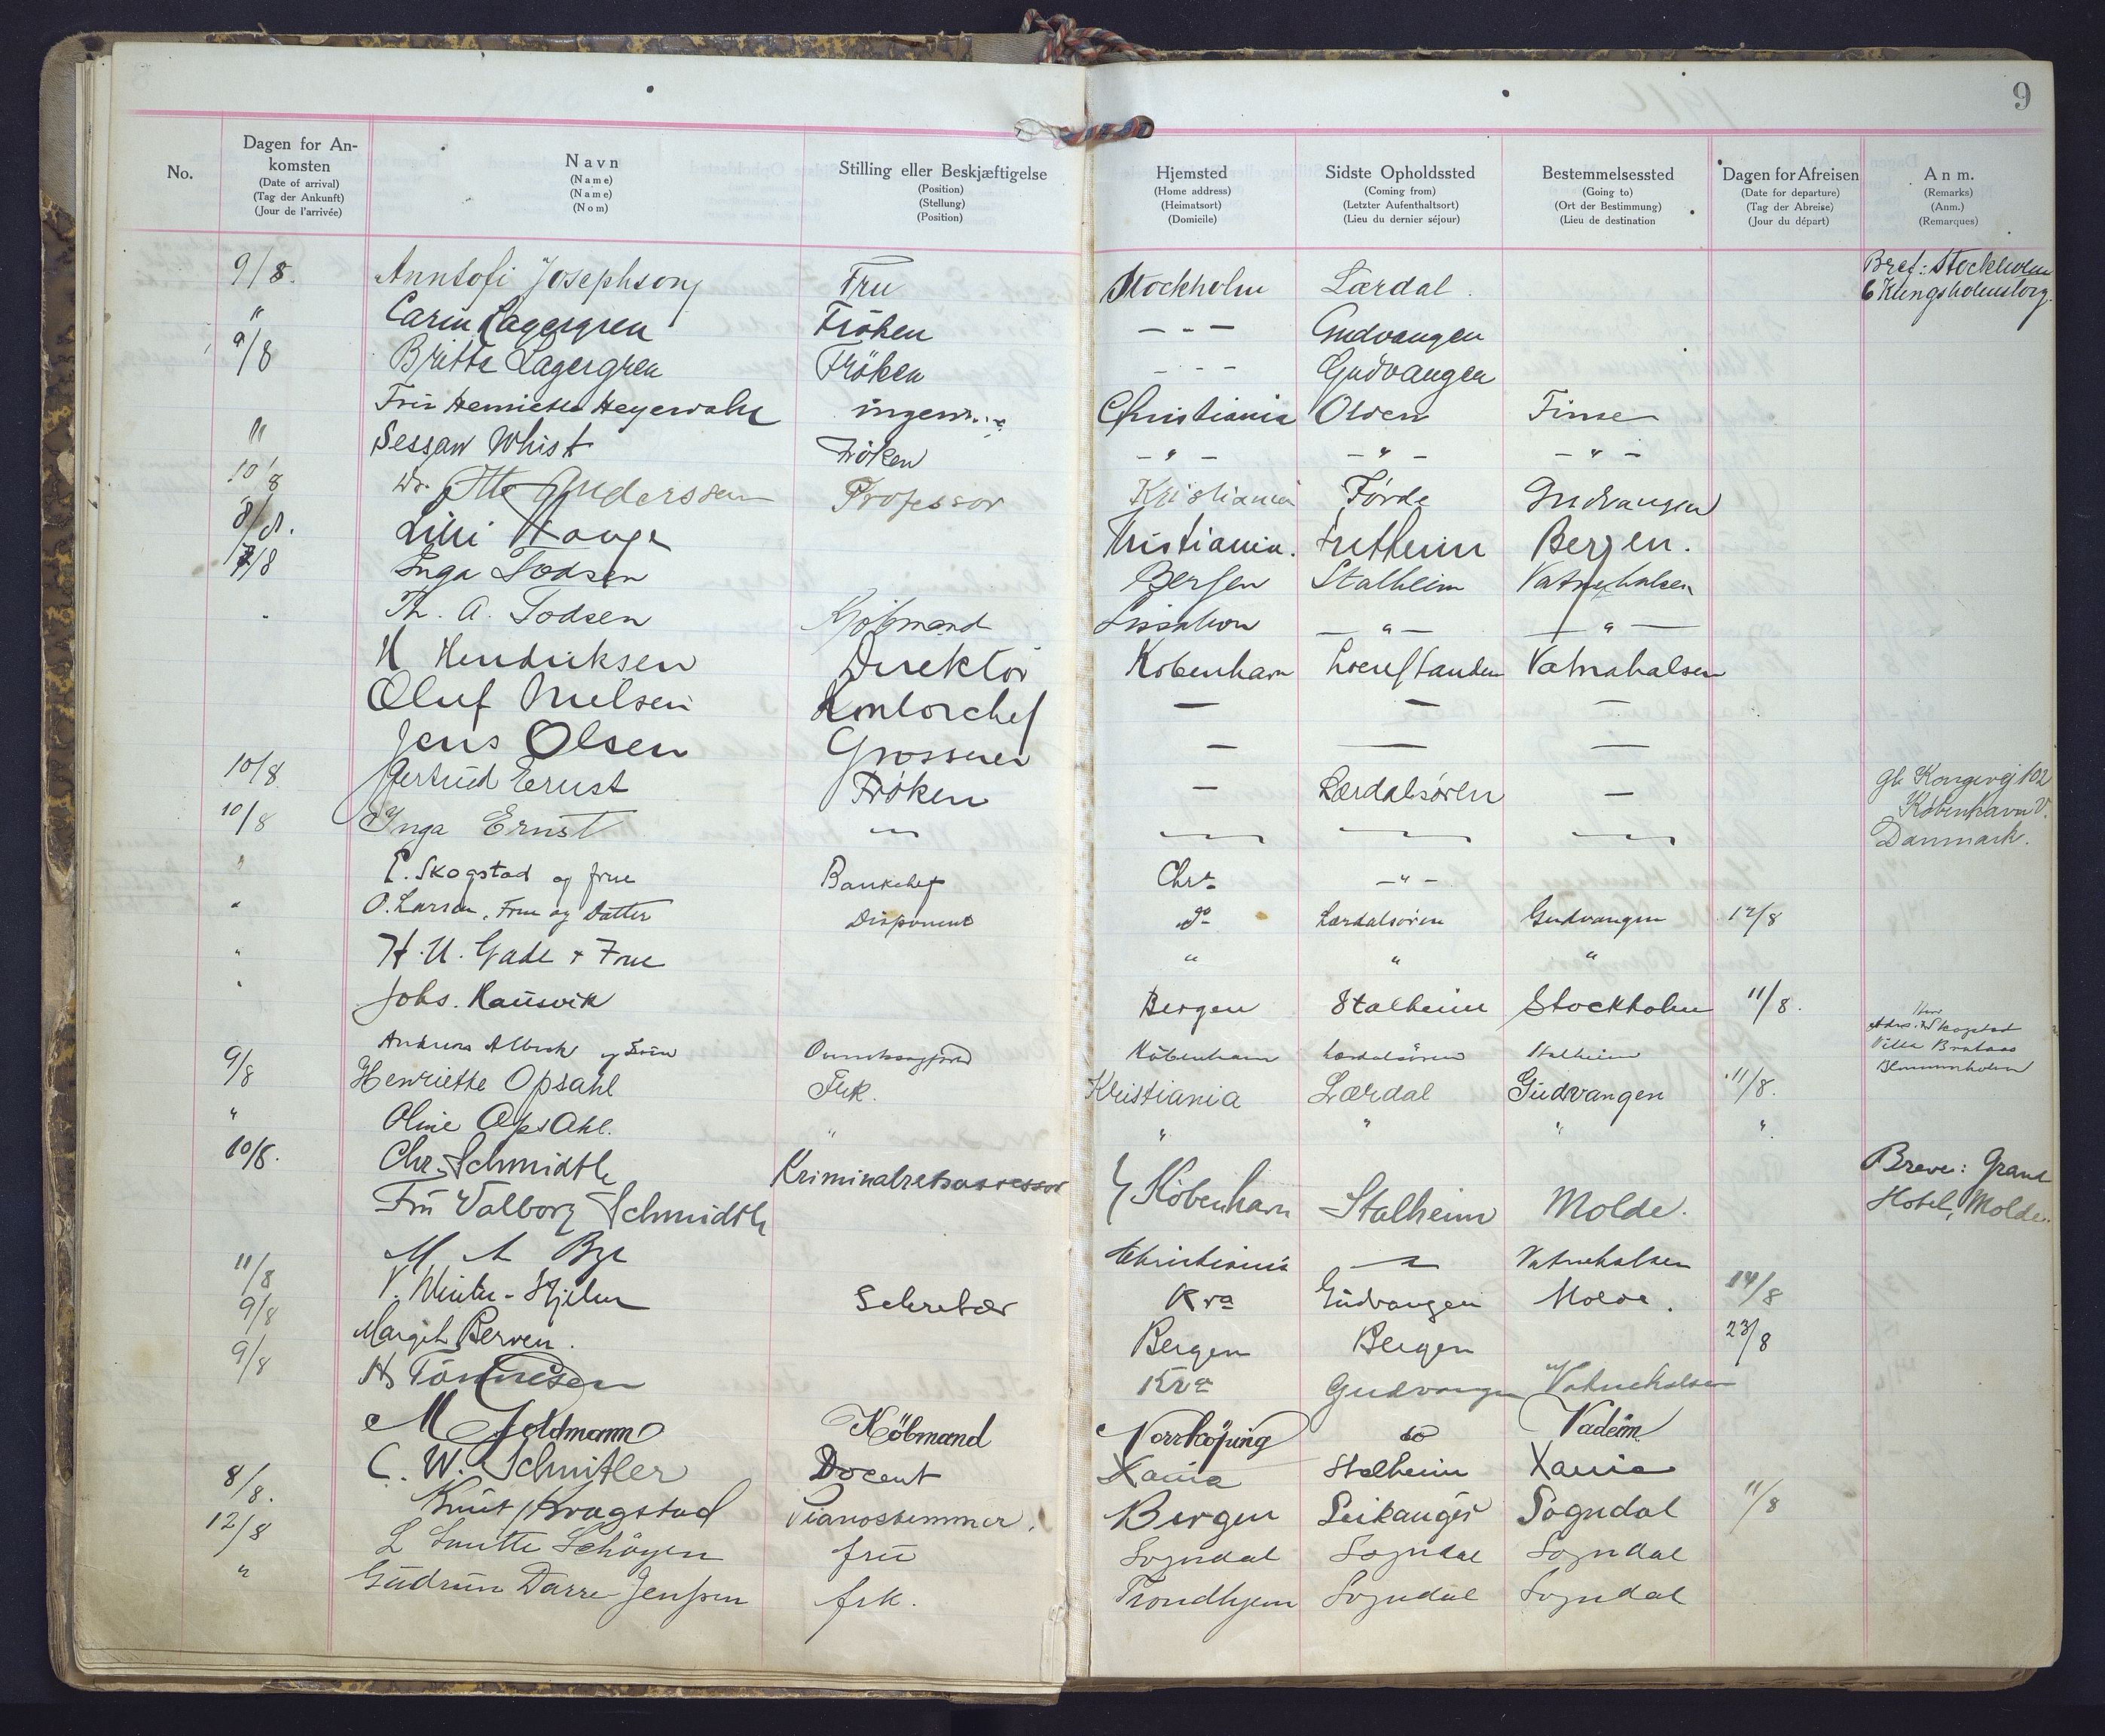 9
No.
Dagen for An-
komsten
(Date of arrival)
(Tag der Ankunft)
(Jour de l'arrivée)
Navn
(Name)
(Name)
(Nom)
Stilling eller Beskjæftigelse
(Position)
(Stellung)
(Position)
Hjemsted
(Home address)
(Heimatsort)
(Domicile)
Sidste Opholdssted
(Coming from)
(Letzter Aufenthaltsort)
(Lieu du dernier séjour)
Bestemmelsessted
(Going to)
(Ort der Bestimmung)
(Lieu de destination
Dagen for Afreisen
(Date for departure)
(Tag der Abreise)
(Jour du départ)
Anm.
(Remarks)
(Anm.)
(Remarques)
9/8. Annsofi Josephson Fru Stockholm Lærdal. Bref: Stockholm
6 Kungsholmstorg.
" Carin Lagergren Fröken - - - Gudvangen
9/8 Britta Lagergren Fröken - - - Gudvangen
Fru Henriette Heyerdahl Christiania Finse
" Whist Fröken - " - - " - - " -
10/8 Dr. Otto Anderssen Professor Kristiania Førde Gudvangen
8/8. Lilli Hauge Kristiania. Fretheim Bergen.
7/8 Inga Todsen Bergen Stalheim Vatnehalsen
Th. A. Todsen Kjöbmand Lissabon - " - - " -
H Hendriksen Direktör Kobenhavn Vatnahalsen
Oluf Nielsen Kontorchef — — —
Jens Olsen Grosserer — — —
10/8 Gertrud Ernst Frøken — Lærdalsøren — Gl. Kongevej 102
10/8 Inga Ernst København V.
Danmark.
" P. Skogstad og frue Bankchef Chra - " -
" O. Larsen, Frue og Datter Disponent do Lærdalsören Gudvangen 12/8
" H. U. Gade + Frue " " "
" Johs. Kausvik Bergen Stalheim Stockholm 11/8.
Andreas og Köbenhavn Lærdalsören Stalheim Skogstad
Villa
9/8 Henriette Opsahl Frk. Kristiania Lærdal Gudvangen 11/8.
" Oline Opsahl. " " " " ".
10/8. Chr. Schmidth Kriminalretsassessor Breve: Grand
Fru Valborg Schmidth Köbenhavn Stalheim Molde. Hotel, Molde.
M A Bye Christiania Vatnehalsen
11/8 V. Winter-Hjelm Sekretær Kra Gudvangen Molde. 14/8
9/8 Margit Berven. Bergen Bergen 23/8
9/8 H Tönnesen Kra Gudvangen Vatnehalsen
M Goldmann Köbmand Norrköping do
C. W. Schnitler Docent Xania Stalheim Xania
8/8. Knut Krogstad Pianostemmer. Bergen Leikanger Sogndal 11/8
12/8 L Smitt Schöyen fru Sogndal Sogndal Sogndal
" Gudrun Darre-Jenssen frk. Trondhjem Sogndal Sogndal